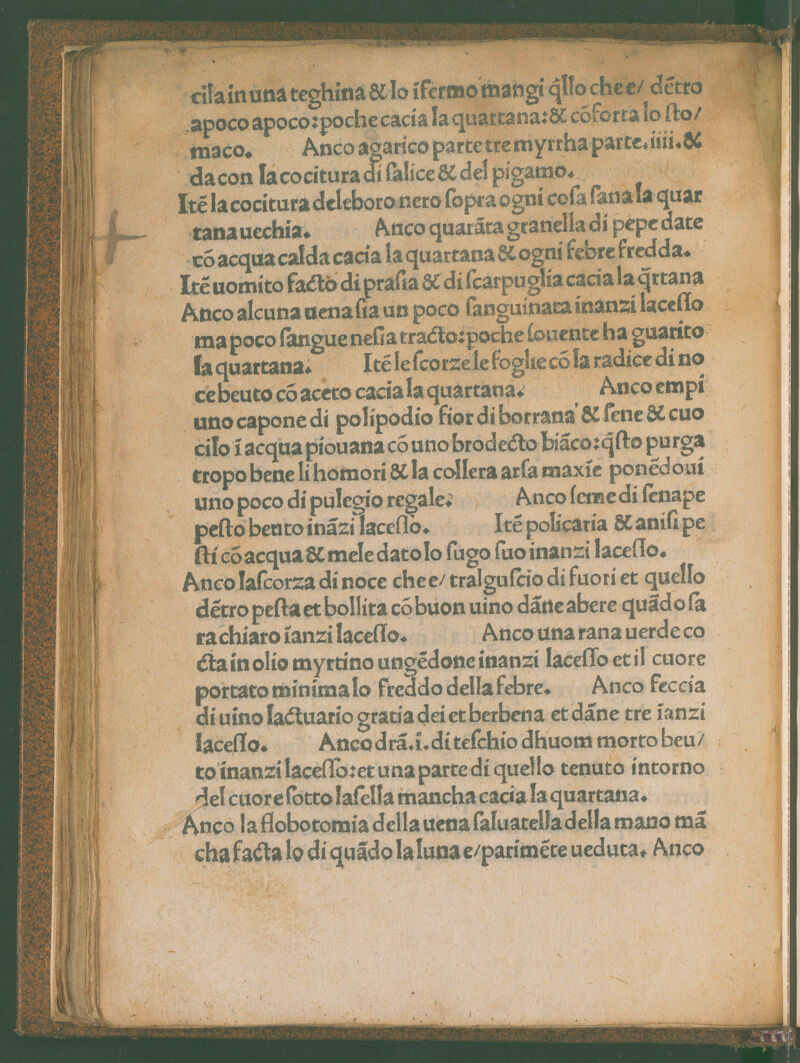 cilain una teghina & lo ifermo mangi q̃llo che e/ dẽtro
apoco apoco: poche cacia la quartana: & cõforta lo sto/
maco. Anco agarico parte tre myrrha parte. iiii. &
da con la cocitura di salice & del pigamo.
Itẽ la cocitura deleboro nero sopra ogni cosa sana la quar
tana uechia. Anco quarãta granella di pepe date
cõ acqua calda cacia la quartana & ogni febre fredda.
Itẽ uomito facto di prasia & di scarpuglia cacia la q̃rtana
Anco alcuna uena sia un poco sanguinata inanzi lacesso
ma poco sangue nesia tracto: poche souente ha guarito
la quartana. Itẽ le scorze le foglie cõ la radice di no
ce beuto cõ aceto cacia la quartana. Anco empi
uno capone di polipodio fior di borrana & sene & cuo
cilo ĩ acqua piouana cõ uno brodecto biãco: q̃sto purga
tropo bene li homori & la collera arsa maxĩe ponẽdoui
uno poco di pulegio regale. Anco seme di senape
pesto beuto inãzi lacesso. Itẽ policaria & anisi pe
sti cõ acqua & mele datolo sugo suo inanzi lacesso.
Anco lascorza di noce che e/ tralguscio di fuori et quello
dẽtro pesta et bollita cõ buon uino dãne abere quãdo sa
ra chiaro ianzi lacesso. Anco una rana uerde co
cta in olio myrtino ungẽdone inanzi lacesso et il cuore
portato minimalo freddo della febre. Anco feccia
di uino lactuario gratia dei et berbena et dãne tre ianzi
lacesso. Anco drã. i. di teschio dhuom morto beu/
to inanzi lacesso: et una parte di quello tenuto intorno
del cuore sotto lasella mancha cacia la quartana.
Anco la flobotomia della uena saluatella della mano mã
cha facta lo di quãdo la luna e/ parimẽte ueduta. Anco